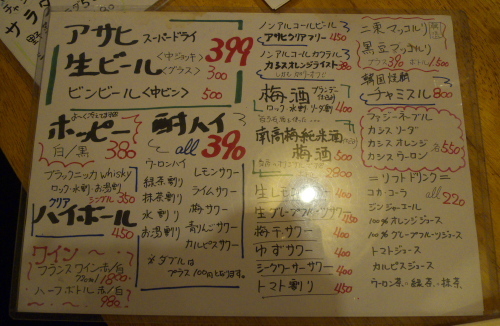 サラダ
アサヒ スーパードライ
生ビール <中ジョッキ> 399
<グラス> 300
ビンビール <中ビン> 500
ホッピー
白/黒 380
ブラックニッカ whisky
ロック・水割・お湯割
シングル 350
クリア
ハイボール
450
ワイン
フランスワイン 赤/白
1800
ハーフボトル 赤/白
980
酎ハイ
all 390
ウーロンハイ
緑茶割り
抹茶割り
水割り
お湯割り
レモンサワー
ライムサワー
梅サワー
青りんごサワー
カルピスサワー
※ダブルは
プラス100円
ノンアルコールビール
アサヒドライフリー 450
ノンアルコールカクテル
カシスオレンジテイスト 380
梅酒
ロック 水割 ソーダ割 400
南高梅純米酒
梅酒 500
2800
生レモンサワー 400
生グレープフルーツサワー
梅干サワー 400
ゆずサワー 400
シークワーサーサワー 400
トマト割り 450
二東マッコルリ
黒豆マッコルリ
グラス 390 ボトル 1500
韓国焼酎
チャミスル 800
ファジーネーブル
カシスソーダ
カシスオレンジ
カシスウーロン
各550
=ソフトドリンク=
all 220
コカ・コーラ
ジンジャエール
100%オレンジジュース
100%グレープフルーツジュース
トマトジュース
カルピスジュース
ウーロン茶・緑茶・抹茶